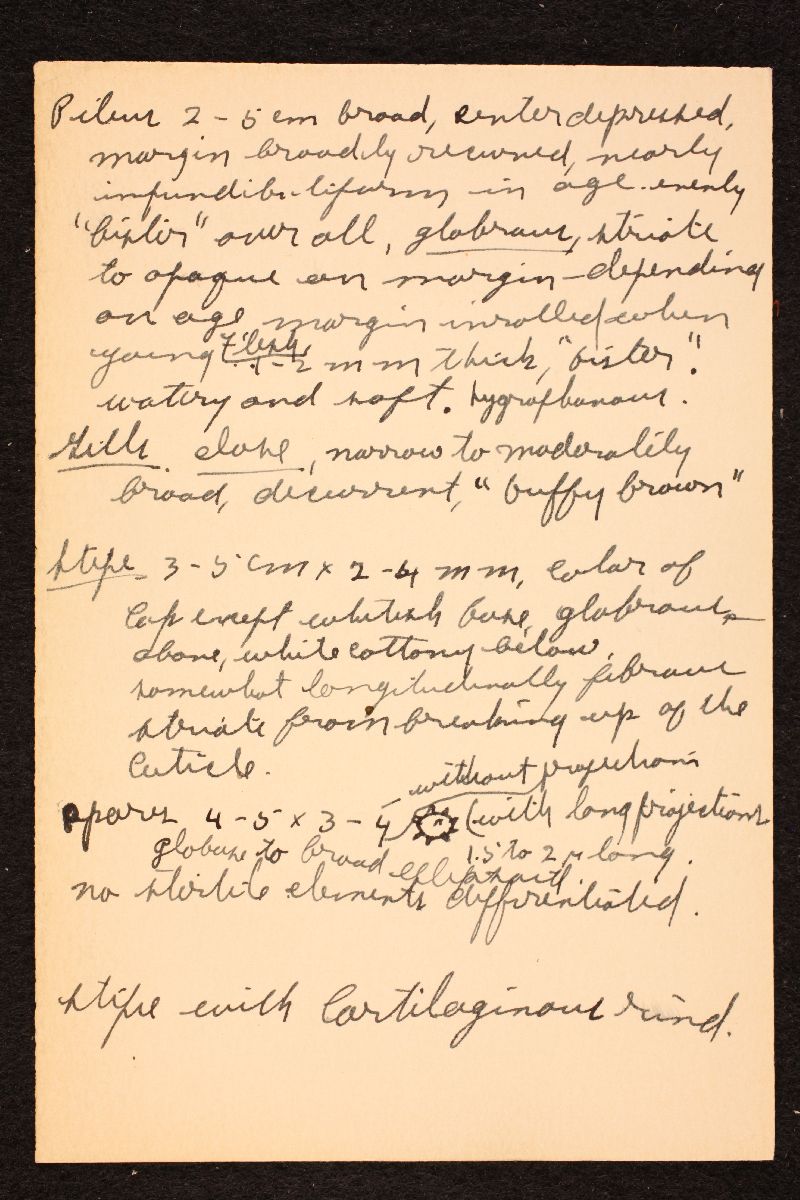 Pileus 2-5 cm broad, center depressed,
margin broadly recurved, nearly
infundibuliform in age. evenly
"bister" over all, glabrous, striate
to opaque on margin - depending
on age margin inrolled when
young Flesh 1-2 mm thick, "bister".
watery and soft. hygrophanous.
Gills close, narrow to moderately
broad, decurrent, "buffy brown"
Stipe 3-5 cm x 2-4 mm, color of
cap except whitish base, glabrous
above, white cottony below,
somewhat longitudinally fibrous
striate from breaking up of the
cuticle.
without projections
spores 4-5 x 3-4 (with long projections
globose to broad ellipsoid 1.5 to 2 μ long.
no sterile elements differentiated.
stipe with cartilaginous rind.